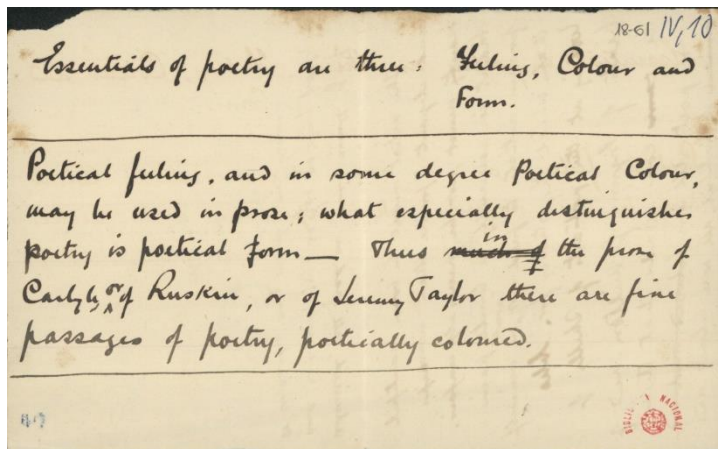 18-61 IV, 10
Essentials of poetry are three: Feeling, Colour and
Form.
Poetical feeling, and in some degree Poetical Colour,
may be used in prose; what especially distinguishes
poetry is poetical form — Thus much of in the prose of
Carlyle, or of Ruskin, or of Jeremy Taylor there are fine
passages of poetry, poetically coloured.
BIBLIOTECA NACIONAL